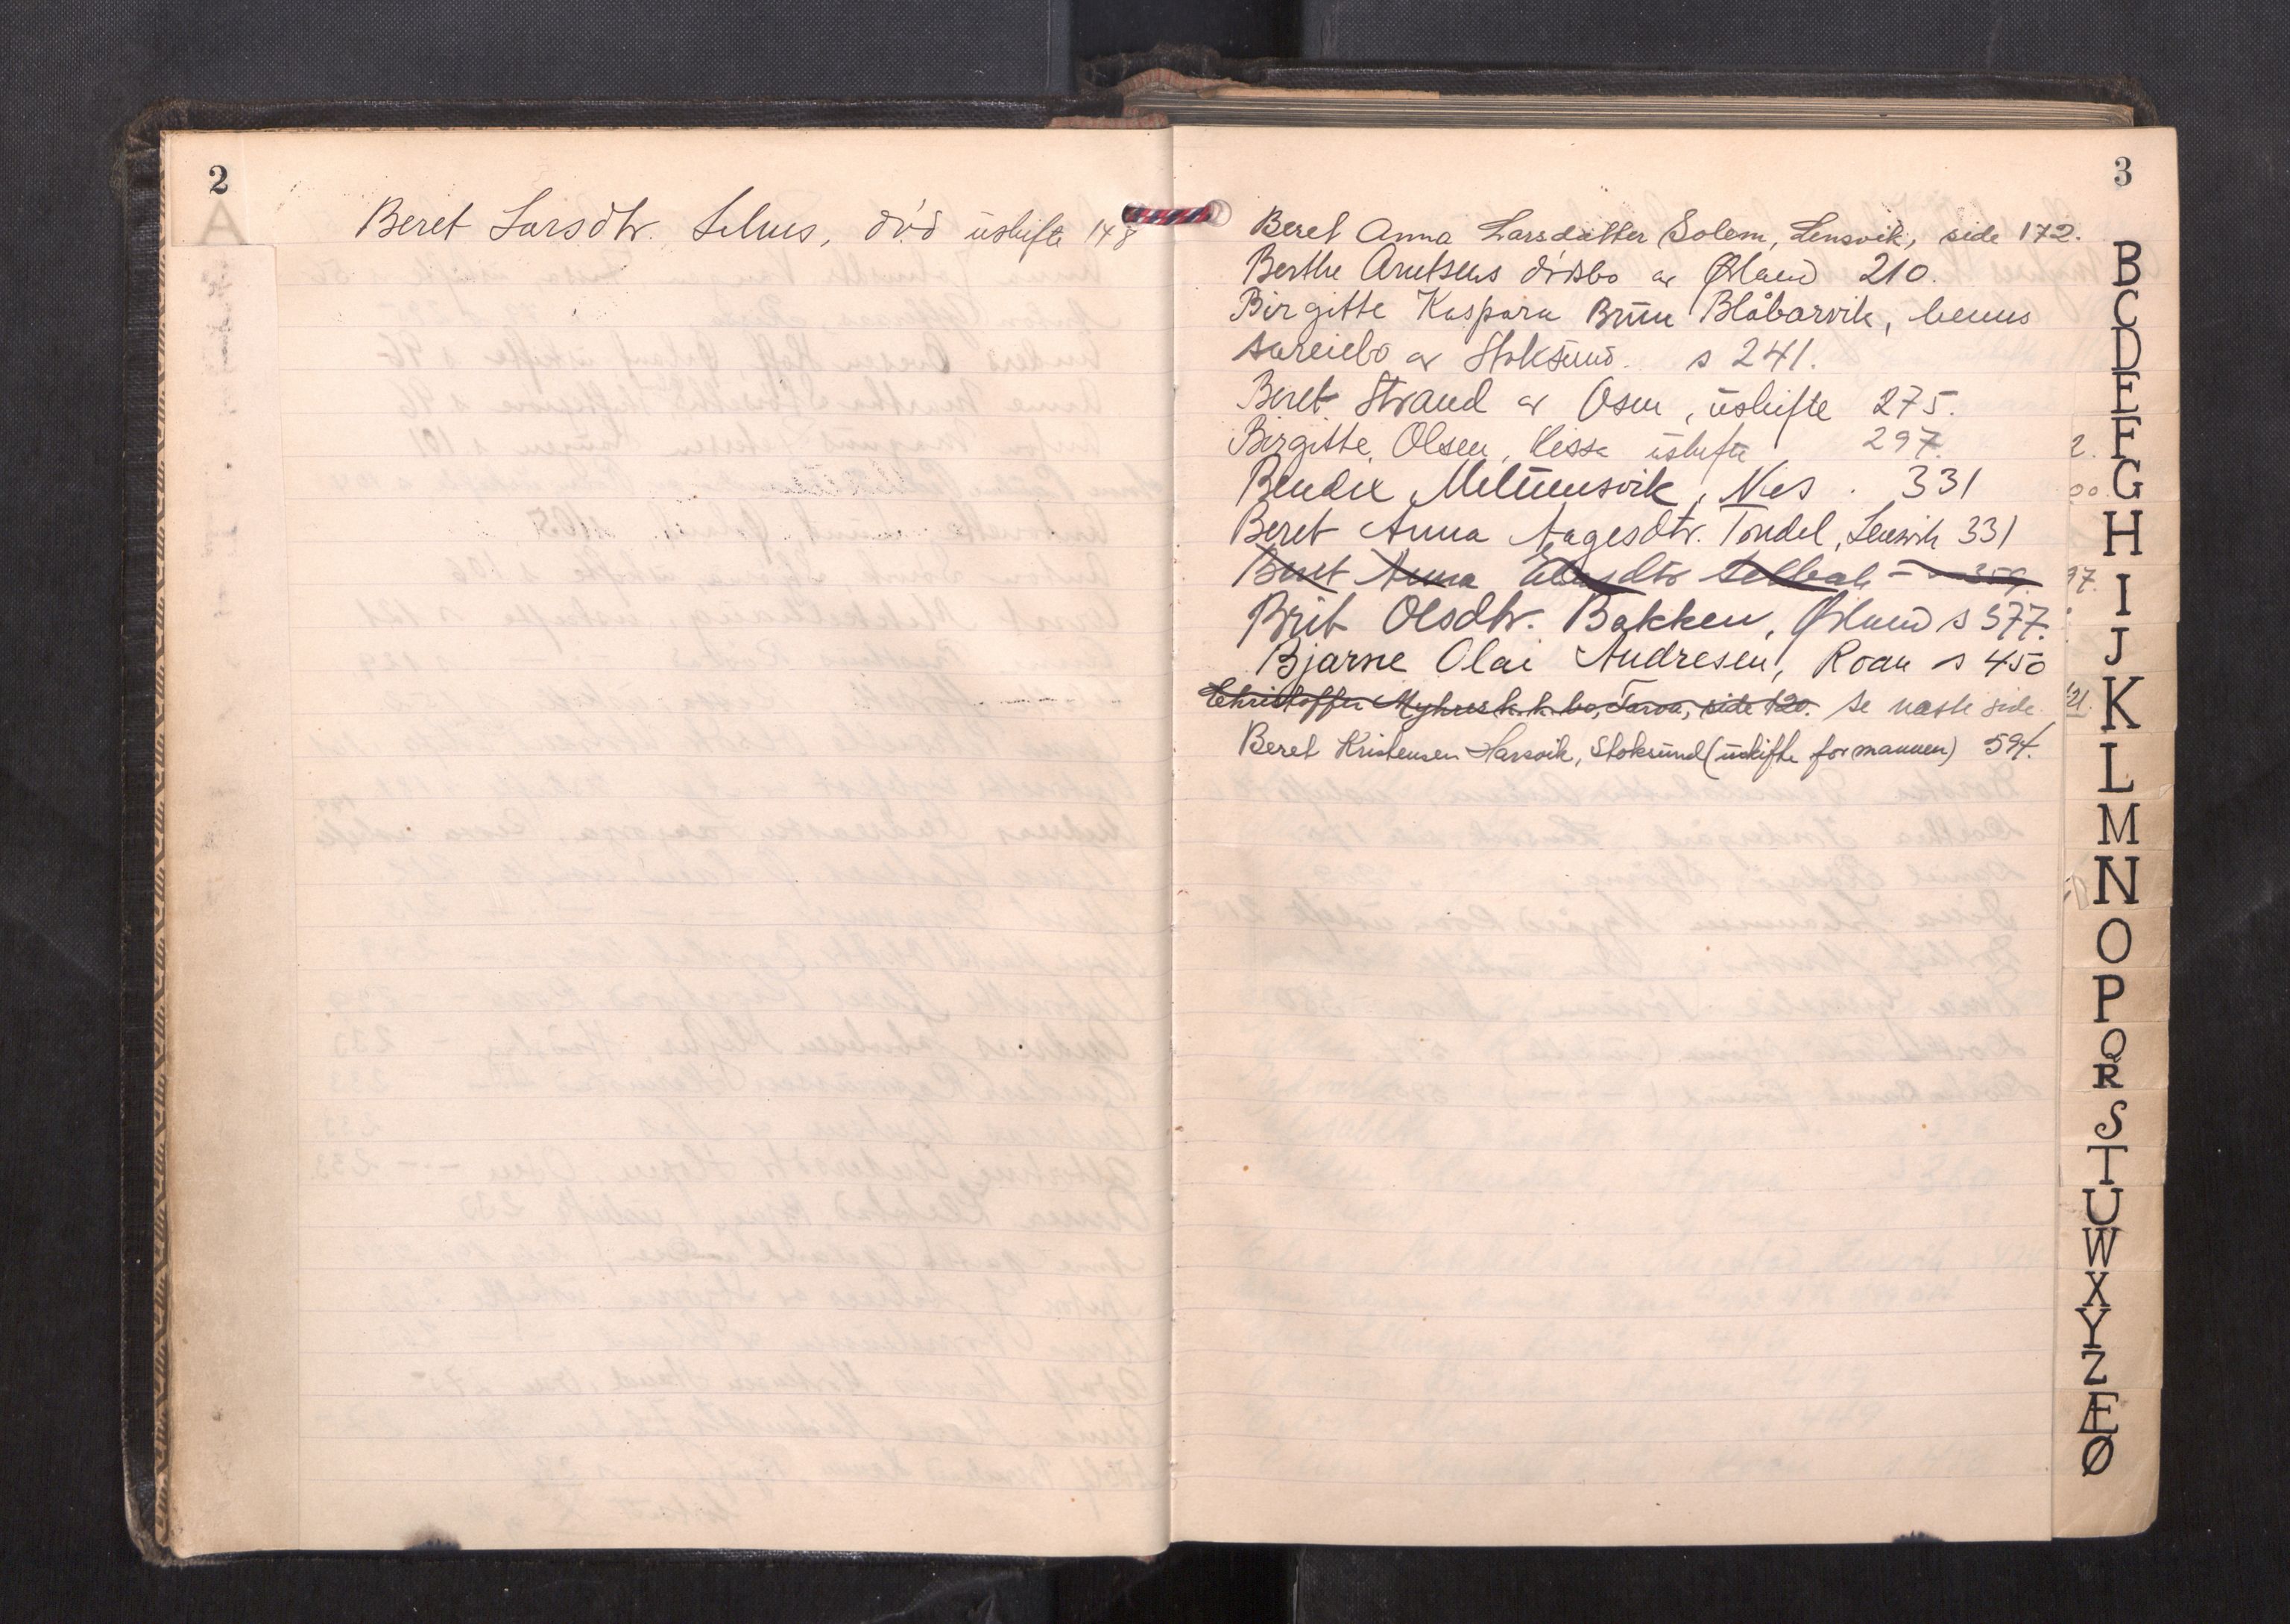 2
Beret Larsdtr. Selnes, død uskifte 148
3
Beret Anna Larsdatter Solem, Lensvik, side 172.
Berthe Arntsens dødsbo av Ørland 210.
Birgitte Kaspara Bruun Blåbarvik, hennes
særeiebo av Stoksund. s 241.
Beret Strand av Osen, uskifte 275.
Birgitte Olsen, Rissa uskifte 297.
Bendix Meltuensvik, Nes. 331
Beret Anna Aagesdtr. Tøndel, Lensvik 331
Beret Anna Selbak 359.
Brit Olsdtr. Bakken, Ørland s 377.
Bjarne Olai Andresen, Roan s 450
Christoffer Myhres k.k. bo, Tarva, side 120. Se næste side
Beret Kristensen Harsvik, Stoksund (uskifte for mannen) 594.
B
C
D
E
F
G
H
I
J
K
L
M
N
O
P
Q
R
S
T
U
W
X
Y
Z
Æ
Ø